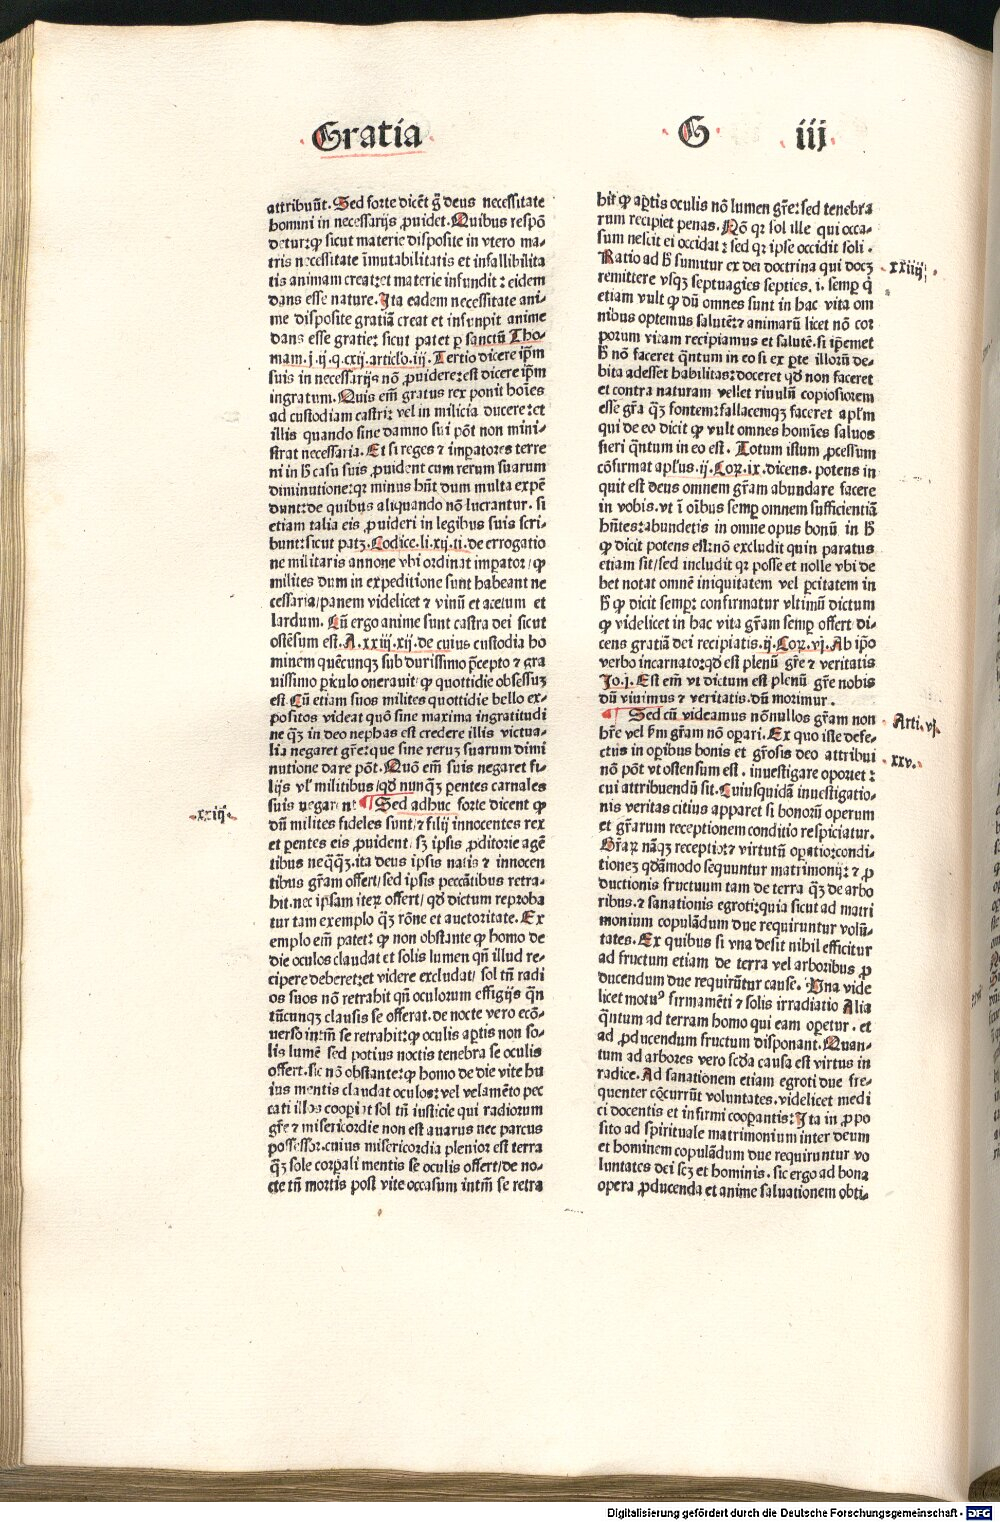 Gratia
G iij
attribuũt. Sed forte dicẽt ꝙ deus necessitate
homini in necessarijs ꝓuidet. Quibus respõ
detur: ꝙ sicut materie disposite in vtero ma-
tris necessitate ĩmutabilitatis et infallibilita
tis animam creat: et materie infundit: eidem
dans esse nature. Ita eadem necessitate ani-
me disposite gratiã creat et infundit anime
dans esse gratie: sicut patet ꝑ sanctũ Tho-
mam. j. ij. q. cxij. articlo. iij. Tertio dicere ip̃m
suis in necessarijs nõ ꝓuidere: est dicere ip̃m
ingratum. Quis em̃ gratus rex ponit hoĩes
ad custodiam castri: vel in milicia ducere: et
illis quando sine damno sui põt non mini-
strat necessaria. Et si reges ⁊ imꝑatores terre
ni in h̃ casu suis ꝓuident cum rerum suarum
diminutione: qꝛ minus hñt dum multa expẽ
dunt: de quibus aliquando nõ lucrantur. si
etiam talia eis ꝓuideri in legibus suis scri-
bunt: sicut patꝫ. Codice. li. xij. ti. de errogatio
ne militaris annone vbi ordinat imꝑator/ ꝙ
milites dum in expeditione sunt habeant ne
cessaria/ panem videlicet ⁊ vinũ et acetum et
lardum. Cũ ergo anime sunt castra dei sicut
ostẽsum est. A. xxiij. xij. de cuius custodia ho
minem quẽcunqꝫ sub durissimo p̃cepto ⁊ gra
uissimo ꝑiculo onerauit: ꝙ quottidie obsessuꝫ
est. Cũ etiam suos milites quottidie bello ex-
positos videat quõ sine maxima ingratitudi
ne qꝫ in deo nephas est credere illis victua-
lia negaret gr̃e: que sine reruꝫ suarum dimi
nutione dare põt. Quõ em̃ suis negaret fi-
lijs vl̓ militibus/ qd̃ nunqꝫ ꝑentes carnales
suis negarent ¶ Sed adhuc forte dicent ꝙ
xxiij.
dũ milites fideles sunt/ ⁊ filij innocentes rex
et ꝑentes eis ꝓuident/ sꝫ ipsis ꝓditorie agẽ
tibus neq̃qꝫ. ita deus ipsis natis ⁊ innocen
tibus gr̃am offert/ sed ipsis peccãtibus retra-
hit. nec ipsam iteꝝ offert/ qd̃ dictum reproba
tur tam exemplo qꝫ rõne et auctoritate. Ex
emplo em̃ patet: ꝙ non obstante ꝙ homo de
die oculos claudat et solis lumen qñ illud re-
cipere deberet: et videre excludat/ sol tñ radi
os suos nõ retrahit qñ oculorum effigijs q̃n
tũcunqꝫ clausis se offerat. de nocte vero ecõ-
uerso intm̃ se retrahit: ꝙ oculis aꝑtis non so-
lis lumẽ sed potius noctis tenebra se oculis
offert. sic nõ obstante: ꝙ homo de die vite hu
ius mentis claudat oculos: vel velamẽto pec
cati illos cooꝑiat sol tñ iusticie qui radiorum
gr̃e ⁊ misericordie non est auarus nec parcus
possessor. cuius misericordia plenior est terra
qꝫ sole corꝑali mentis se oculis offert/ de no-
cte tñ mortis post vite occasum intm̃ se retra
hit ꝙ aꝑtis oculis nõ lumen gr̃e: sed tenebra
rum recipiet penas. Nõ qꝛ sol ille qui occa-
sum nescit ei occidat: sed qꝛ ipse occidit soli.
Ratio ad h̃ sumitur ex dei doctrina qui docꝫ
xxiiij.
remittere vsqꝫ septuagies septies. i. semꝑ q̃
etiam vult ꝙ dũ omnes sunt in hac vita om
nibus optemus salutẽ: ⁊ animarũ licet nõ cor
porum vitam recipiamus et salutẽ. si ip̃emet
h̃ nõ faceret q̃ntum in eo si ex ꝑte illorũ de-
bita adesset habilitas: doceret qd̃ non faceret
et contra naturam vellet riuulũ copiosiorem
esse gr̃a qꝫ fontem: fallacemqꝫ faceret apl̃m
qui de eo dicit ꝙ vult omnes homĩes saluos
fieri q̃ntum in eo est. Totum istum ꝓcessum
cõfirmat apl̃us. ij. Coꝝ. ix. dicens. potens in
quit est deus omnem gr̃am abundare facere
in vobis. vt ĩ oĩbus semꝑ omnem sufficientiã
hñtes: abundetis in omne opus bonũ in h̃
ꝙ dicit potens est: nõ excludit quin paratus
etiam sit/ sed includit qꝛ posse et nolle vbi de
bet notat omnẽ iniquitatem vel ꝑcitatem in
h̃ ꝙ dicit semꝑ: confirmatur vltimũ dictum
ꝙ videlicet in hac vita gr̃am semꝑ offert di-
cens gratiã dei recipiatis. ij. Coꝝ. vj. Ab ip̃o
verbo incarnato: qd̃ est plenũ gr̃e ⁊ veritatis
Jo. j. Est em̃ vt dictum est plenũ gr̃e nobis
dũ viuimus ⁊ veritatis. dũ morimur.
¶ Sed cũ videamus nõnullos gr̃am non
Arti. vj.
hr̃e vel h̃m gr̃am nõ oꝑari. Ex quo iste defe-
ctus in oꝑibus bonis et gr̃osis deo attribui
xxv.
nõ põt vt ostensum est. inuestigare oportet:
cui attribuendũ sit. Cuiusquidã inuestigatio-
nis veritas citius apparet si bonorũ operum
et gr̃arum receptionem conditio respiciatur.
Gr̃aꝝ nãqꝫ receptio: ⁊ virtutũ oꝑatio: condi-
tionez qd̃ãmodo sequuntur matrimonij: ⁊ ꝓ
ductionis fructuum tam de terra qꝫ de arbo
ribus. ⁊ sanationis egroti: quia sicut ad matri
monium copulãdum due requiruntur volũ-
tates. Ex quibus si vna desit nihil efficitur
ad fructum etiam de terra vel arboribus ꝓ
ducendum due requirũtur cause. Una vide
licet motu⁹ firmamẽti ⁊ solis irradiatio Alia
q̃ntum ad terram homo qui eam oꝑetur. et
ad ꝓducendum fructum disponant. Quan-
tum ad arbores vero scd̃a causa est virtus in
radice. Ad sanationem etiam egroti due fre-
quenter cõcurrũt voluntates. videlicet medi
ci docentis et infirmi cooꝑantis: Ita in ꝓpo
sito ad spirituale matrimonium inter deum
et hominem copulãdum due requiruntur vo
luntates dei scꝫ et hominis. sic ergo ad bona
opera ꝓducenda et anime saluationem obti-
Digitalisierung gefördert durch die Deutsche Forschungsgemeinschaft - DFG